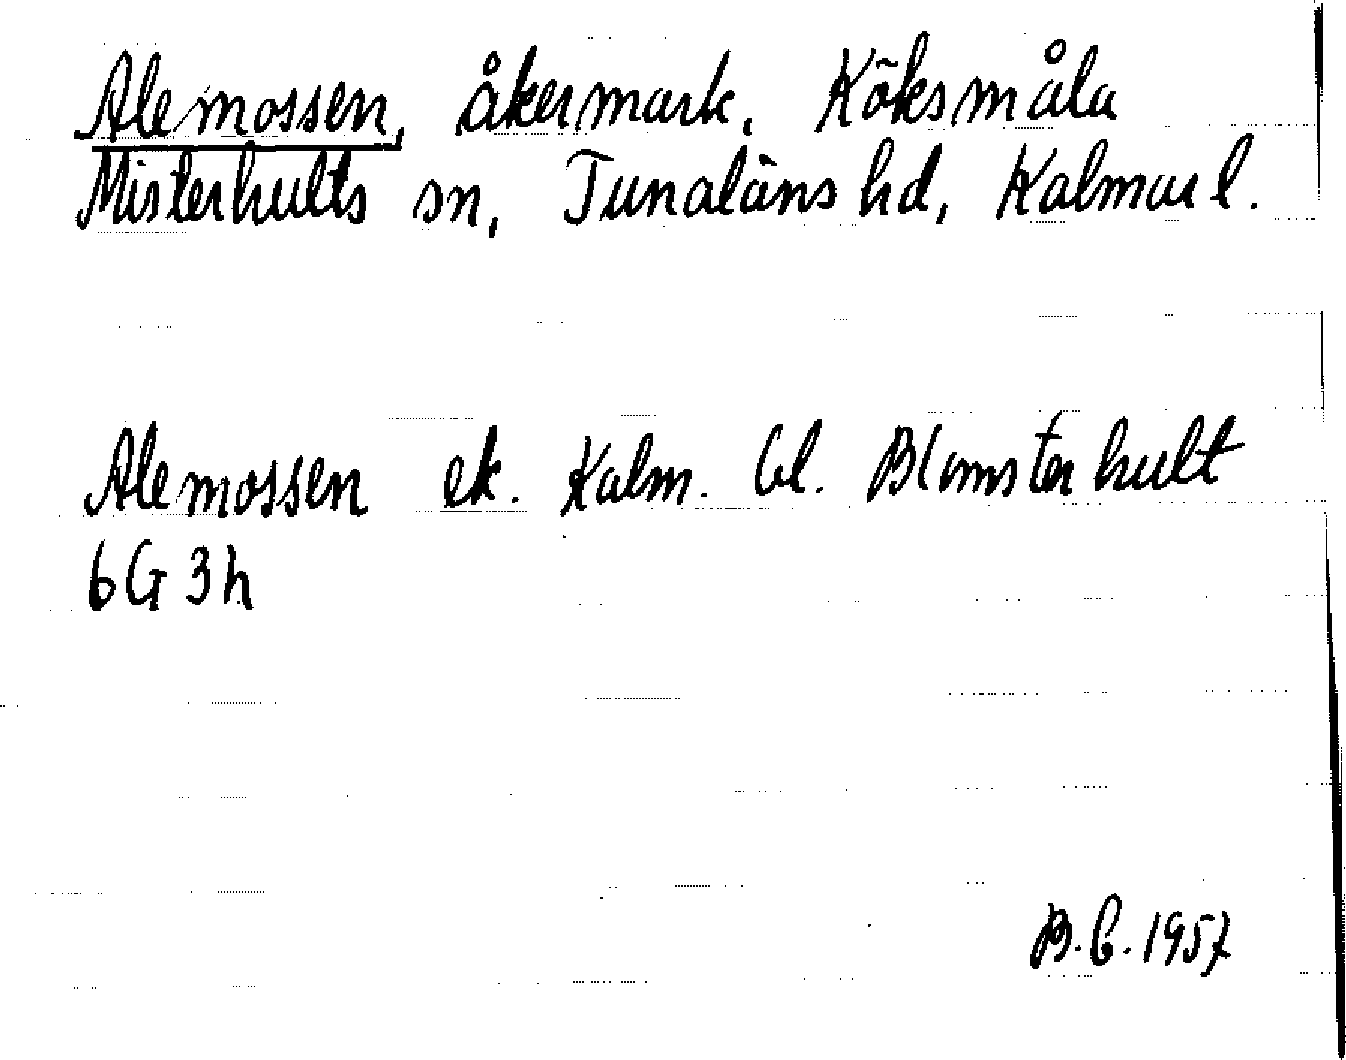 Alemossen, åkermark, Köksmåla
Misterhults sn, Tunaläns hd, Kalmar l.
Alemossen ek. Kalm. bl. Blomsterhult
6G 3h
B.E. 1957